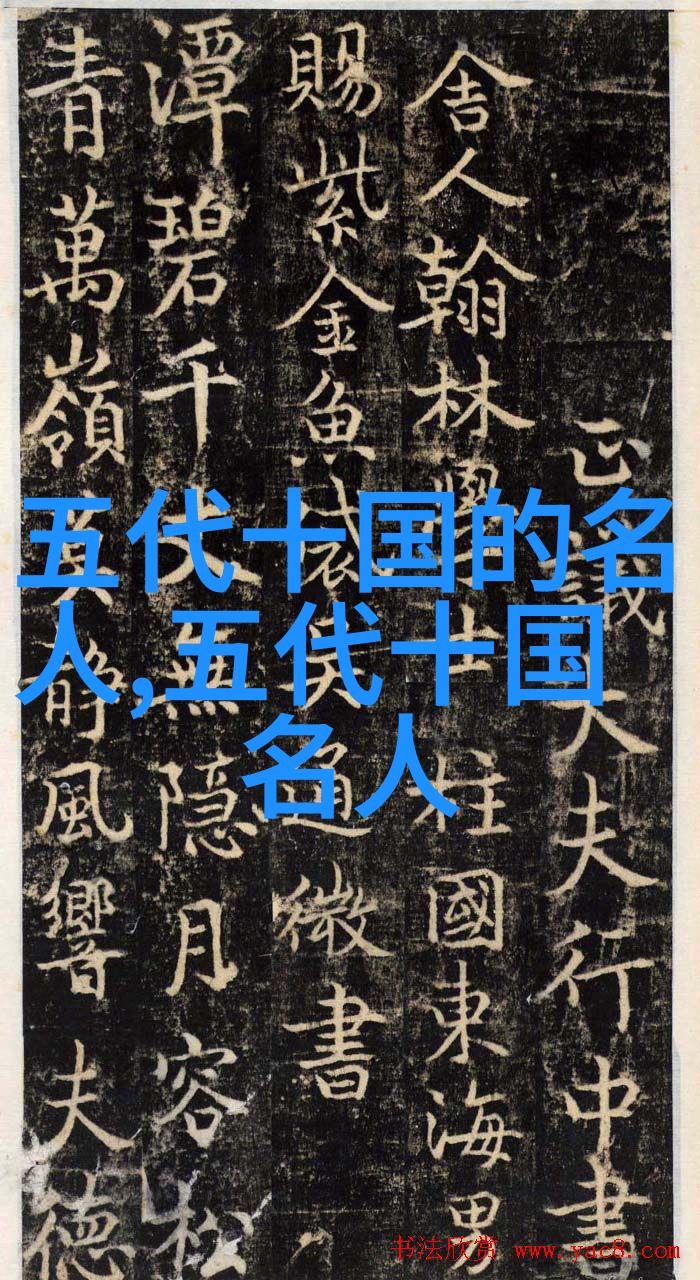 正議大夫行中書
舎人翰林學士柱國東海男
賜紫金魚袋吴通微書
潭碧千丈無隐月容松
青萬嶺英静風響夫德
五代十国的名
人,五代十国
名人
书法欣赏 www.yac8.com